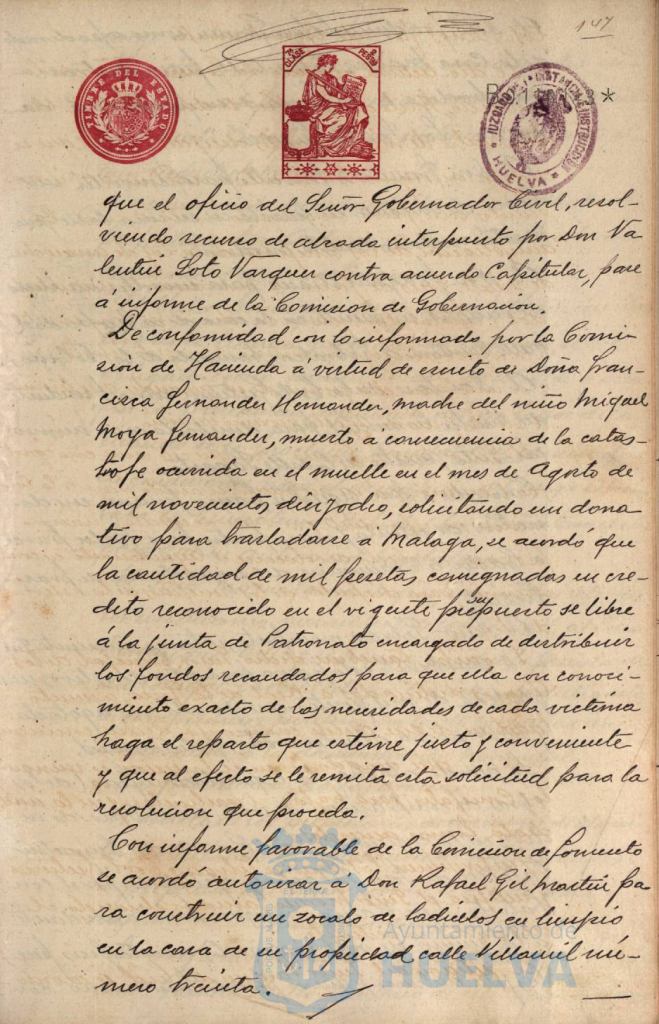 147
TIMBRE DEL ESTADO
1ª CLASE
PESETAS
JUZGADO DE 1ª INSTANCIA E INSTRUCCION
* HUELVA *
que el oficio del Señor Gobernador Civil, resol-
viendo recurso de alzada interpuesto por Don Va-
lentin Soto Vazquez contra acuerdo Capitular, pase
á informe de la Comision de Gobernacion.
De conformidad con lo informado por la Comi-
sion de Hacienda á virtud de escrito de Doña Fran-
cisca Fernandez Hernandez, madre del niño Miguel
Moya Fernandez, muerto á consecuencia de la catas-
trofe ocurrida en el muelle en el mes de Agosto de
mil novecientos diez y ocho, solicitando un dona-
tivo para trasladarse á Malaga, se acordó que
la cantidad de mil pesetas consignadas en cre-
dito reconocido en el vigente presupuesto se libre
á la junta de Patronato encargado de distribuir
los fondos recaudados para que ella con conoci-
miento exacto de las necesidades de cada victima
haga el reparto que estime justo y conveniente
y que al efecto se le remita esta solicitud para la
resolucion que proceda.
Con informe favorable de la Comision de Fomento
se acordó autorizar á Don Rafael Gil Martin pa-
ra construir un zocalo de ladrillos en limpio
en la casa de su propiedad calle Villamil nú-
mero treinta.
Ayuntamiento de
HUELVA